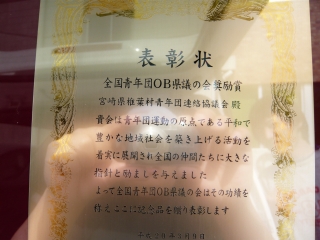 表彰状
全国青年団OB県議の会奨励賞
宮崎県椎葉村青年団連絡協議会 殿
貴会は青年団運動の原点である平和で
豊かな地域社会を築き上げる活動を
着実に展開され全国の仲間たちに大きな
指針と励ましを与えました
よって全国青年団OB県議の会はその功績を
称えここに記念品を贈り表彰します